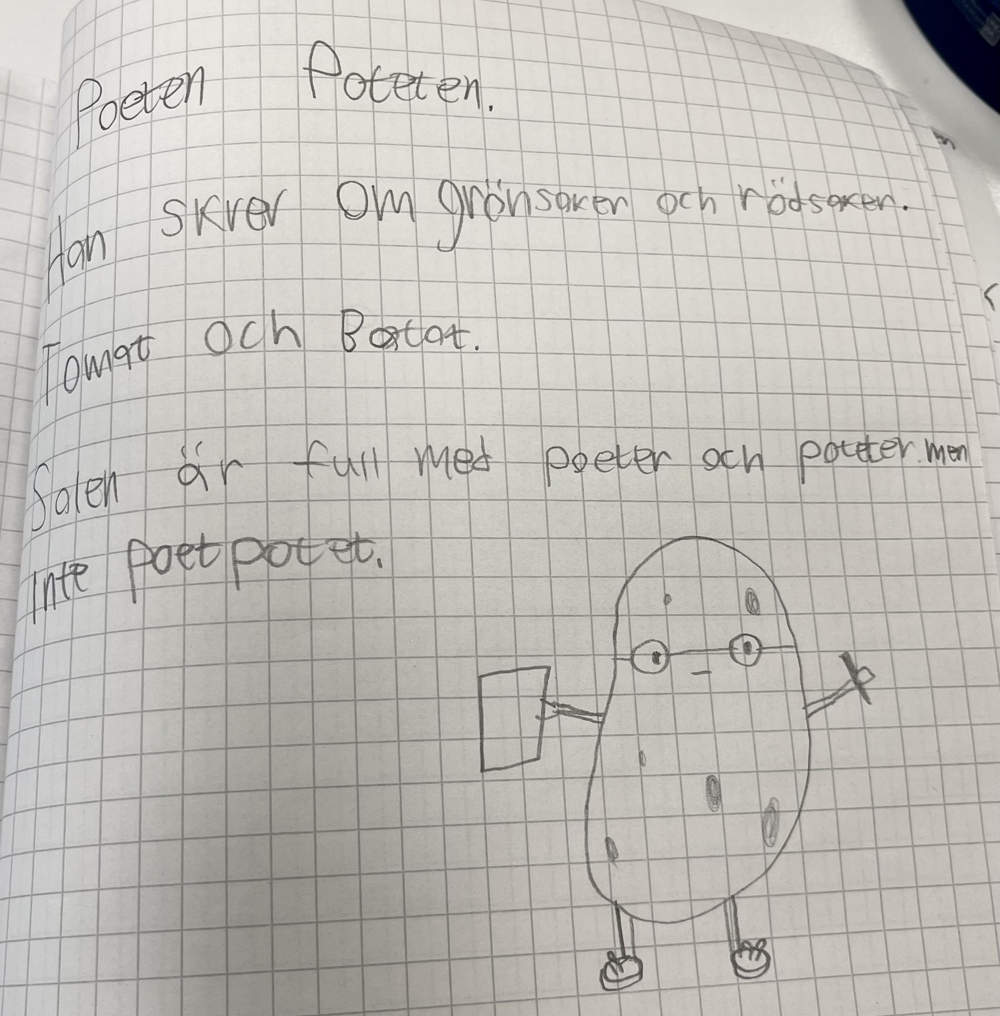 Poeten Poteten.
Han skrer om grönsaker och rödsaker.
Tomat och Batat.
Salen är full med poeter och poteter men
inte poetpotet.